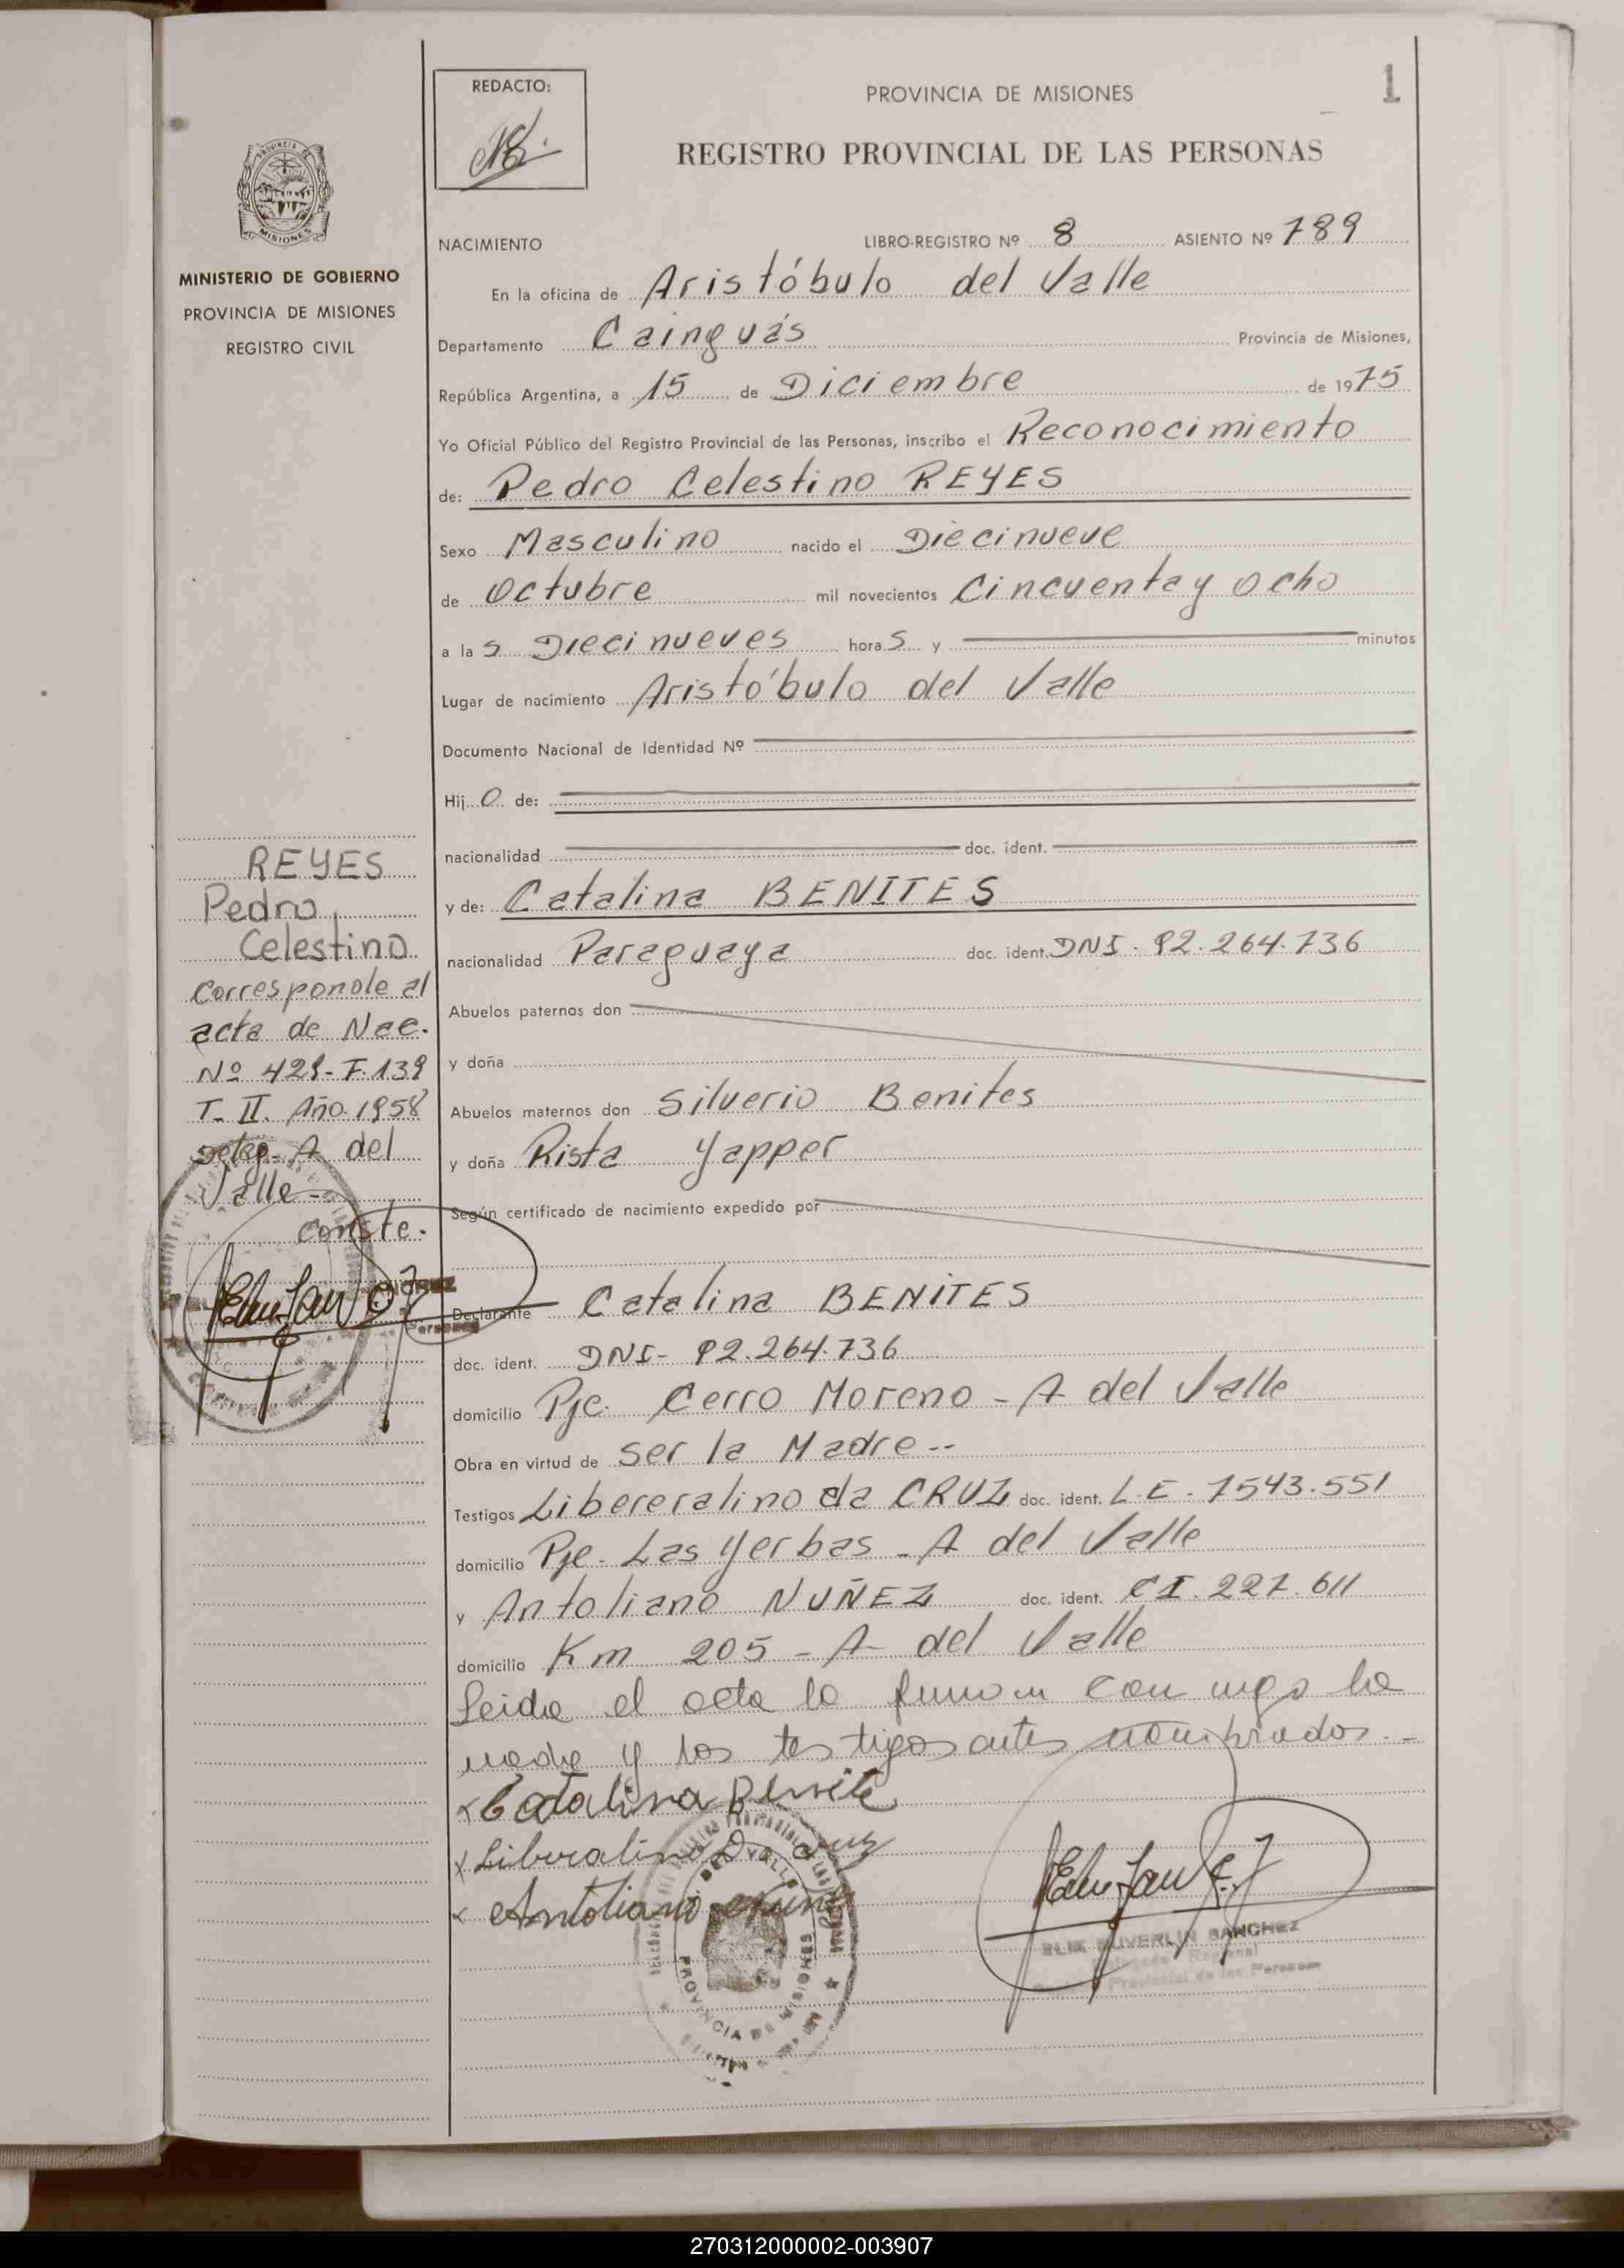 1
REDACTO:
PROVINCIA DE MISIONES
REGISTRO PROVINCIAL DE LAS PERSONAS
PROVINCIA DE
MISIONES
MINISTERIO DE GOBIERNO
PROVINCIA DE MISIONES
REGISTRO CIVIL
NACIMIENTO LIBRO-REGISTRO Nº 8 ASIENTO Nº 789
En la oficina de Aristóbulo del Valle
Departamento Cainguás Provincia de Misiones,
República Argentina, a 15 de Diciembre de 1975
Yo Oficial Público del Registro Provincial de las Personas, inscribo el Reconocimiento
de: Pedro Celestino REYES
Sexo Masculino nacido el Diecinueve
de Octubre mil novecientos Cincuenta y Ocho
a las Diecinueves horas y minutos
Lugar de nacimiento Aristóbulo del Valle
Documento Nacional de Identidad Nº
Hijo de:
nacionalidad doc. ident.
y de: Catalina BENITES
nacionalidad Paraguaya doc. ident. DNI. 92.264.736
Abuelos paternos don
y doña
Abuelos maternos don Silverio Benites
y doña Rista Yapper
Según certificado de nacimiento expedido por
Declarante Catalina BENITES
doc. ident. DNI- 92.264.736
domicilio Pje. Cerro Moreno - A del Valle
Obra en virtud de ser la Madre--
Testigos Libereralino da CRUZ doc. ident. L.E. 7543.551
domicilio Pje. Las Yerbas - A del Valle
y Antoliano NUÑEZ doc. ident. CI. 227.611
domicilio Km 205 - A del Valle
Leida el acta la firman con migo la
madre y los testigos antes nombrados.-
Catalina Benite
Liberalino Da Cruz
Antoliano Nuñe
REYES
Pedro
Celestino
Corresponde al
acta de Nac.
Nº 429- F. 139
T. II. Año 1958
Deleg. A del
Valle-
Conste.
DEL VALLE
PROVINCIA DE MISIONES
SANCHEZ
Regional
Provincial de las Personas
270312000002-003907